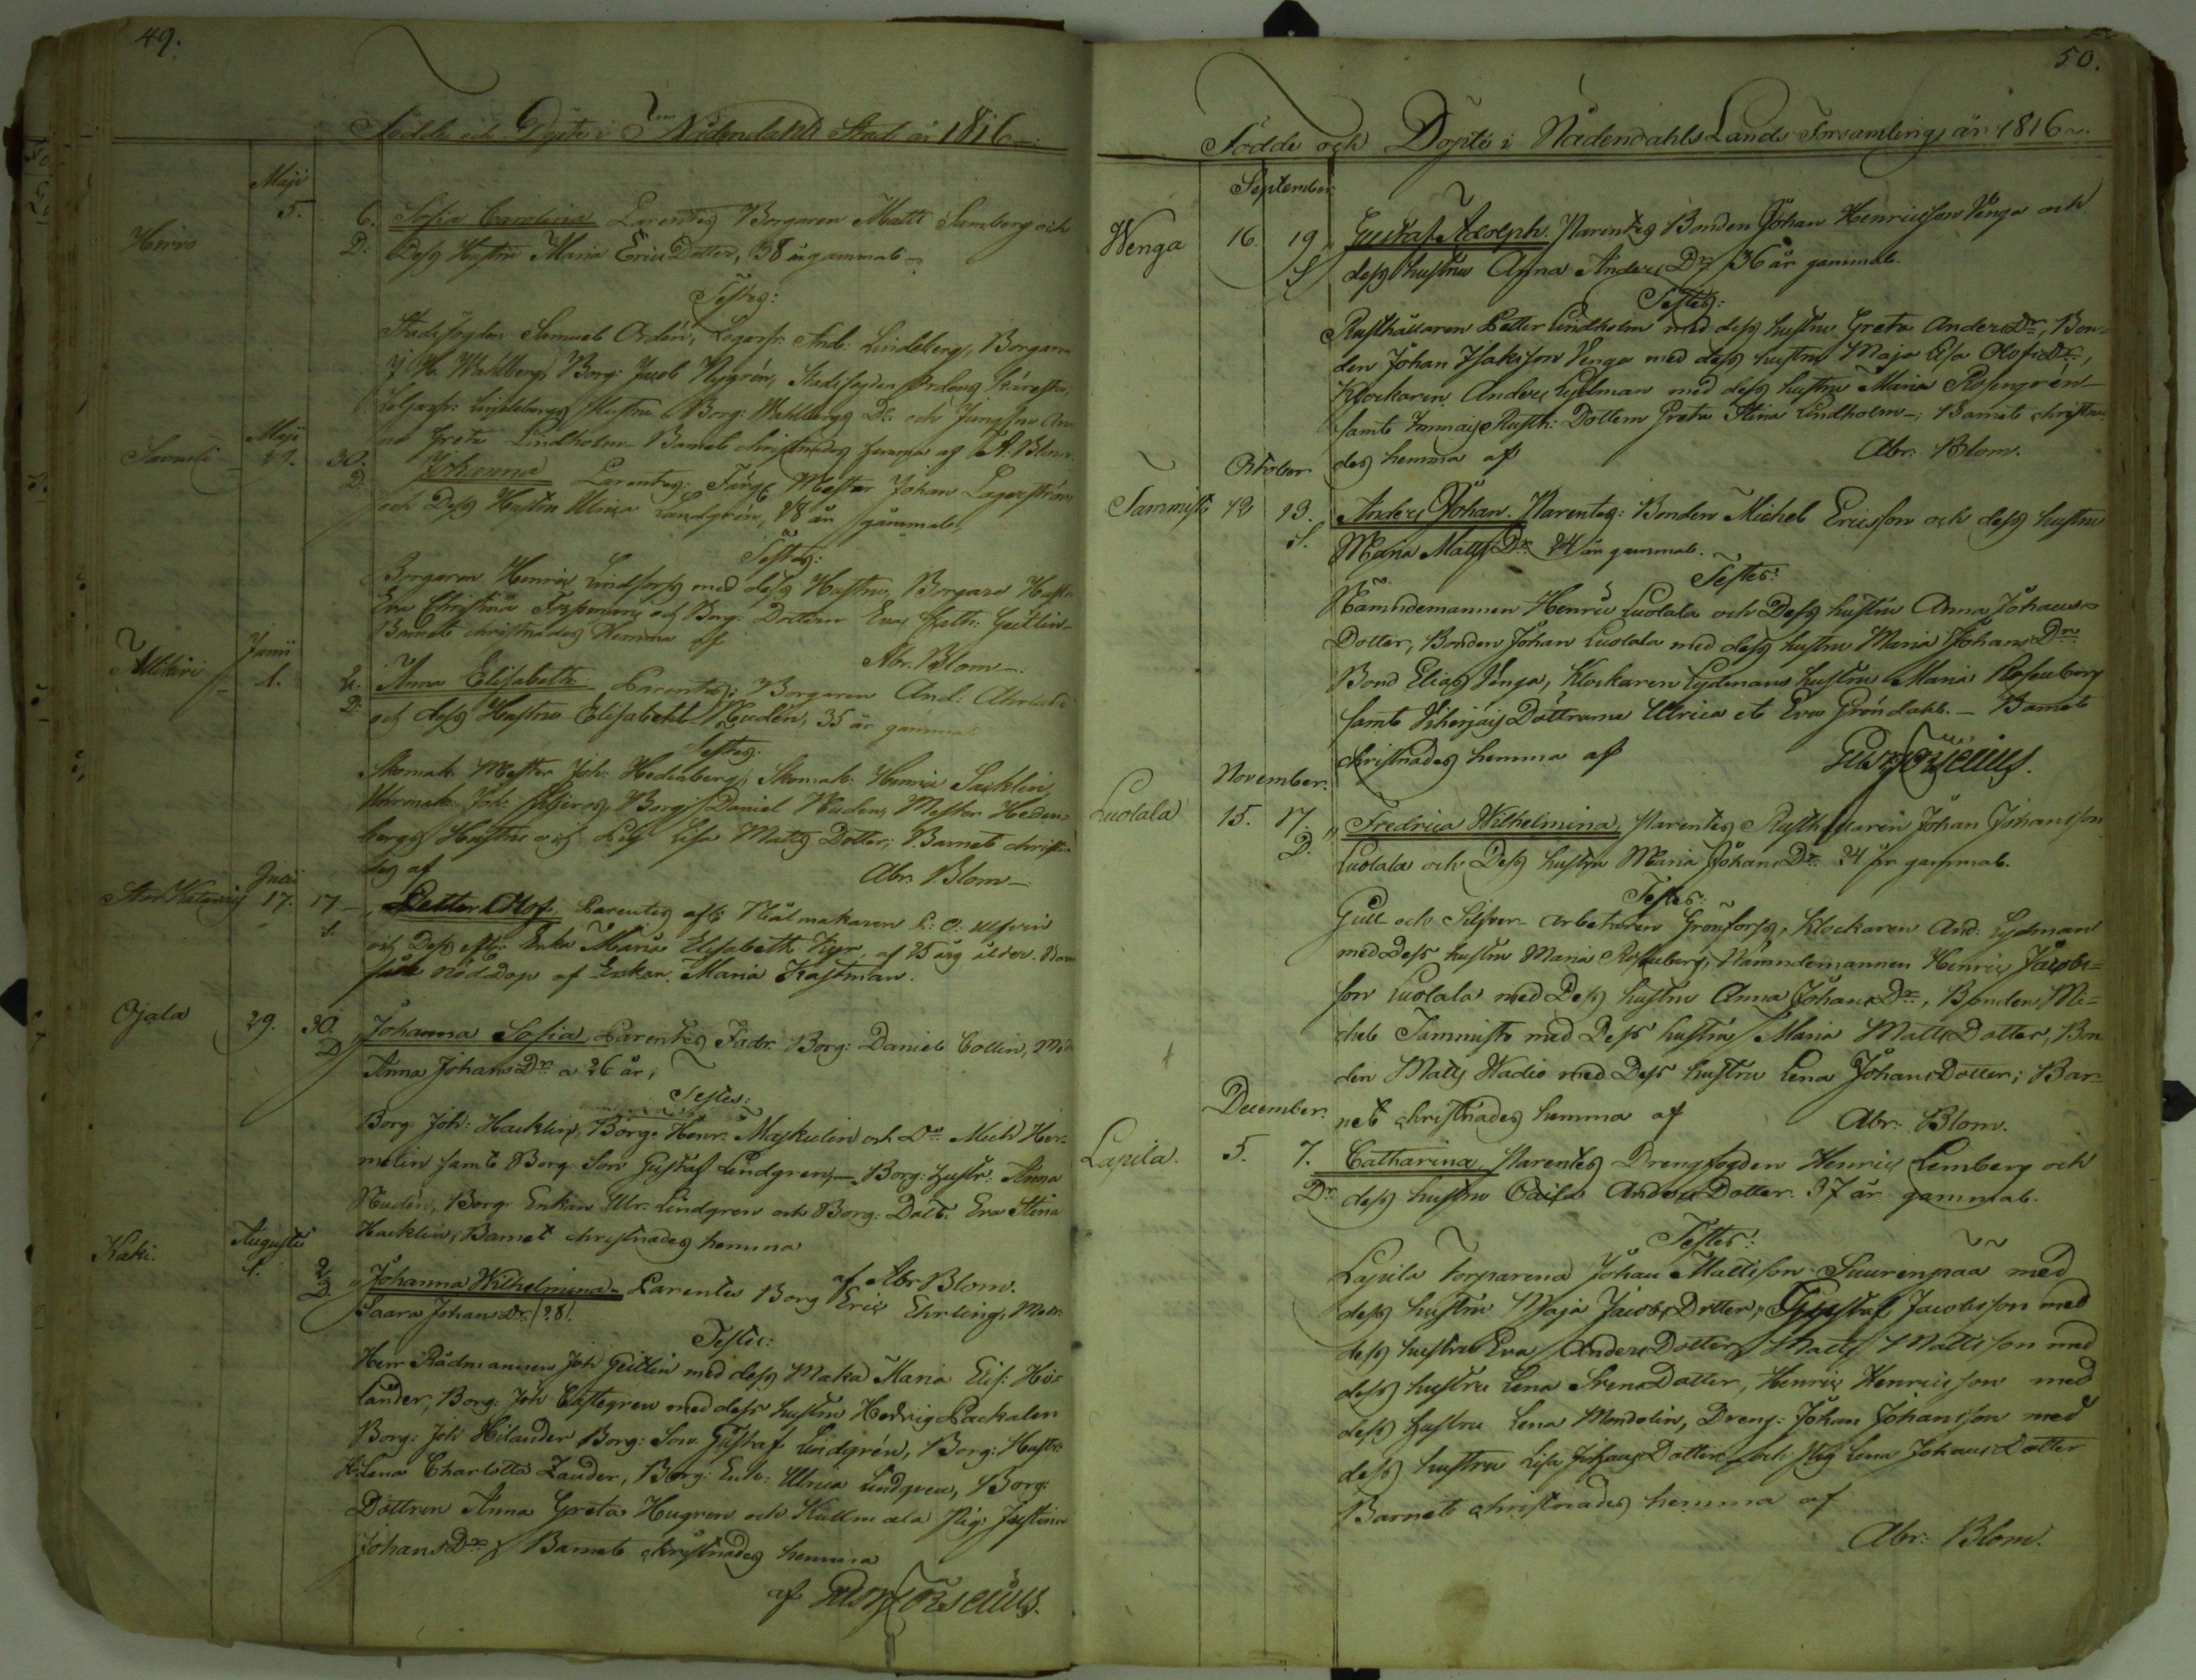 49.
Födde och Döpte i Nådendahls Stad år 1816
Maji
5. 6. Sofia Carolina Parentes Borgaren Matts Samberg och
D: Dess Hustru Maria Erics Dotter, 38 år gammal
Testes:
Stadsfogden Samuel Ordén, And: Lindeberg, Borgaren
Wahlberg, Borg: Jacob Nygrén, Stadsfogden
Lindebergs Hustru Borg: Wahlbergs Dr och Jungfru An
na Greta Lindholm Barnet christnades hemma af A. Blom.
Maji
29. 30. Johanna Parentes: Färg Mäster Johan Lagerström
D. och Dess Hustru Ulrica Lundgrén, 28 år gammal,
Testes:
Borgaren Henric Lindfors med dess Hustru, Borgare Hustr
Eva Christina och Borg: Dottern Eva Cath: Geitlin
Barnet christnades Hemma af
Abr. Blom.
Junii
1. 2. Anna Elisabeth Parentes: Borgaren And:
D: och dess Hustru Elisabeth Nudén, 35 år gammal
Testes.
Skomak: Mester Joh: Hedenberg, Skomak: Henric Saxklin,
Joh: Borg: Daniel Nudén, Mester Heden
bergs Hustru och Pig Lisa Matts Dotter; Barnet christna
des af
Abr. Blom
Julii
17. 17 Petter Olof Parentes
S. och Dess Enka Maria Elisabeth af 25 års ålder. Barn
Nöd Dop af Enkan Maria Kastman.
Ojala 29. 30. Johanna Sofia, Parentes Fadr. Borg: Daniel Collin, Mod
D Anna Johans Dr a 26 år,
Testes:
Borg. Joh: Hacklin, Borg. Henr. Maskulin och Do Mich Her=
melin samt Borg Son Gustaf Lindgren, Borg: hustr: Anna
Nudén, Borg Enkan Ulr. Lindgren och Borg. Dott. Eva Stina
Hacklin, Barnet christnades hemma
af Abr Blom.
Kaki. Augusti
1. 2 Johanna Wilhelmina Parentes Borg Eric Ehrling, Modr
D Saara Johans Dr /28/.
Testes:
Herr Rådmannen Joh Geitlin med dess Maka Maria Elis: Hö=
lander, Borg: Joh Castegren med dess hustru Hedvig Packalen
Borg: Joh Hilander Borg: Son Gustaf Lindgrén, Borg: Hustr:
H: Lena Charlotta Zander, Borg: Enk: Ulrica Lindgren, Borg:
Dottren Anna Greta Hugren och Kullmala Pig: Justina
Johans Dr Barnet christnades hemma
af
50.
Födde och Döpte i Nådendahls Lands Församling år 1816.
September
Wenga 16. 19 Gustaf Adolph. Parentes Bonden Johan Henricsson Wenga och
dess hustru Anna Anders Dr 36 år gammal.
Testes:
Rusthållaren Petter Lindholm med dess hustru Greta Anders Dr, Bon=
den Johan Isaksson Venga med dess hustru Maja Lisa Olofs Dr,
Klockaren Anders Lydman med dess hustru Maria Rosengrén
samt Rusth: Dottern Greta Stina Lindholm; Barnet christna
des hemma af
Abr. Blom.
Oktober
Tammisto 12 13. Anders Johan. Parentes: Bonden Michel Ericsson och dess hustru
S. Maria Matts Dr 24 år gammal.
Testes:
Nämndemannen Henric Luolala och Dess hustru Anna Johans
Dotter, Bonden Johan Luolala med dess hustru Maria Johans Dr
Bond Elias Venga, Klockaren Lydmans hustru Maria Rosenberg
samt Döttrarne Ulrica et Eva Gröndahl. Barnet
christnades hemma af
November.
Luolala 15. 17 Fredrica Wilhelmina, Parentes Rusthållaren Johan Johansson
D. Luolala och Dess hustru Maria Johans Dr 24 år gammal.
Testes:
Gull och Silfver-arbetaren Grönfors, Klockaren And: Lydman
med Dess hustru Maria Rosenberg, Nämndemannen Henric Jacobs=
son Luolala med Dess hustru Anna Johans Dr, Bonden Mi=
chel Tammisto med Dess hustru Maria Matts Dotter, Bon
den Matts Wadio med Dess hustru Lena Johans Dotter; Bar=
net christnades hemma af
Abr. Blom.
December.
Lapila. 5. 7. Catharina, Parentes Drengfogden Henric Lemberg och
D. dess hustru Caisa Anders Dotter. 37 år gammal.
Testes:
Lapila Torparena Johan Mattsson Suurenpää med
dess hustru Maja Jacobs Dotter, Gustaf Jacobsson med
dess hustru Eva Anders Dotter, Matts Mattsson med
dess hustru Lena Svens Dotter, Henric Henricsson med
dess Hustru Lena Mondolin, Dreng: Johan Johansson med
dess hustru Lisa Johans Dotter och Pig Lena Johans Dotter
Barnet christnades hemma af
Abr: Blom.